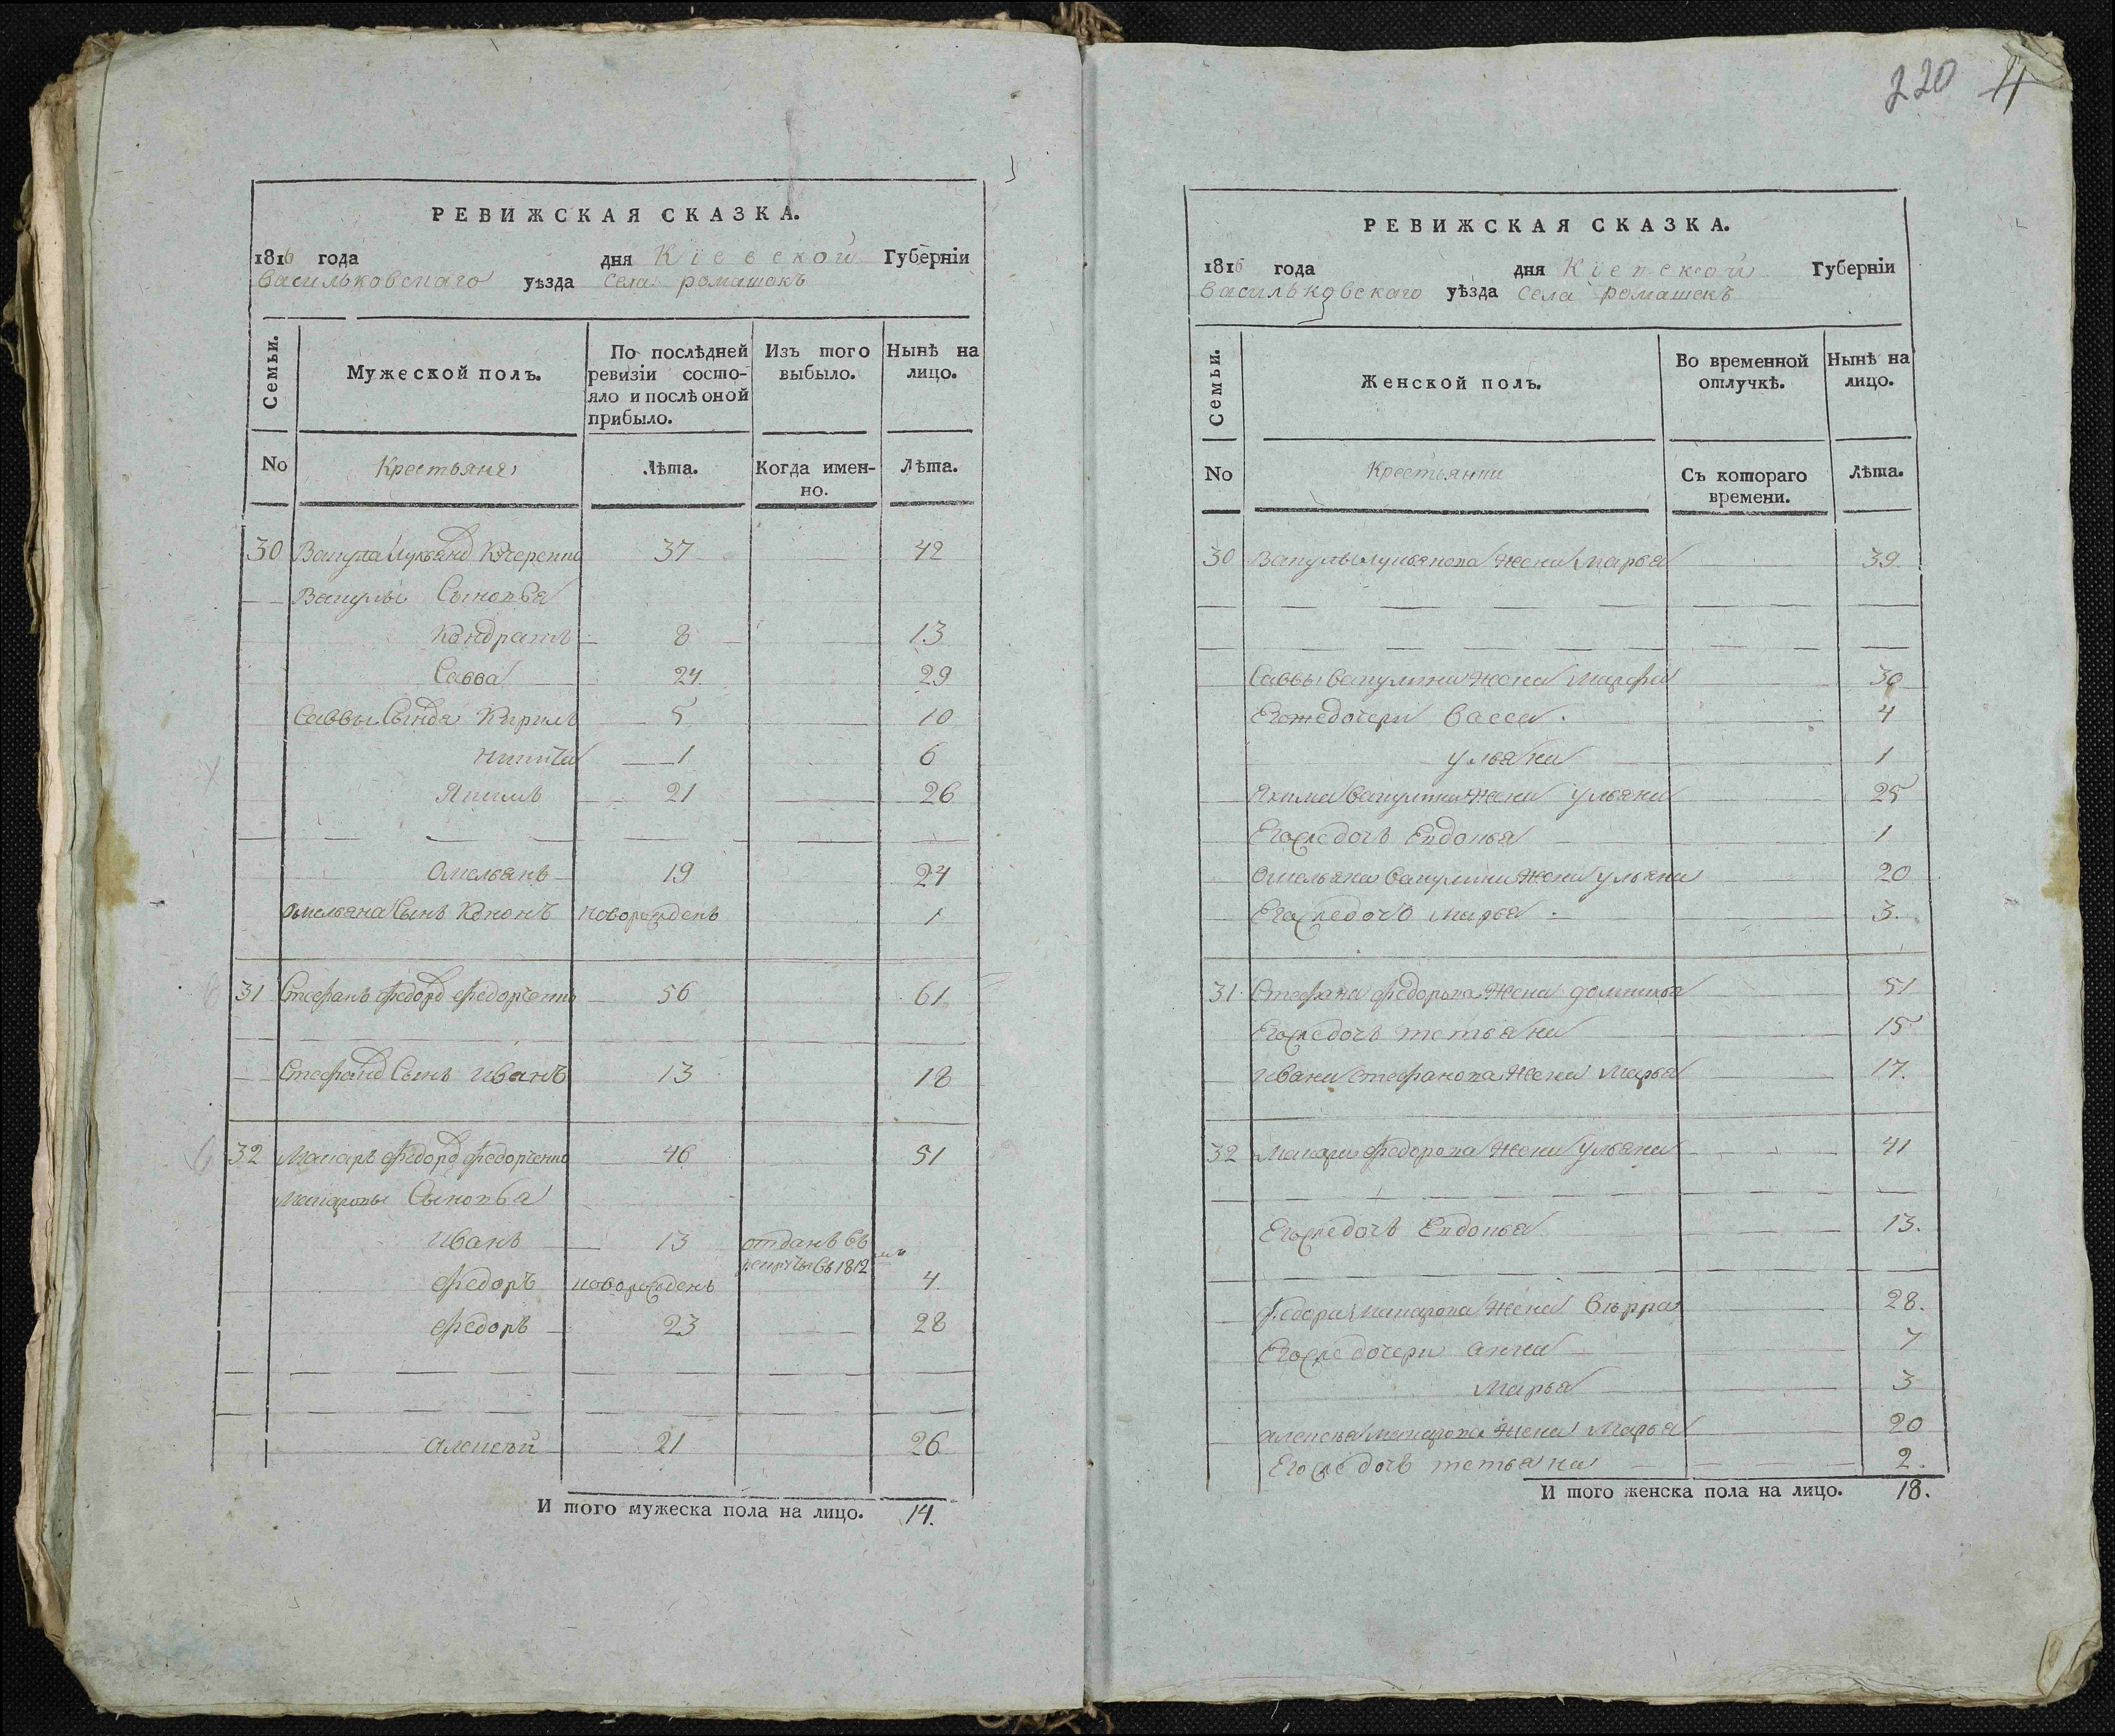 220 4
РЕВИЖСКАЯ СКАЗКА.
1816 года дня Кіевской Губерніи
Васильковскаго уѣзда села ромашокъ
Семьи.
Мужеской полъ.
По послѣдней ревизіи состо-
яло и послѣ оной
прибыло.
Изъ того выбыло.
Нынѣ на лицо.
No Крестьяне Лѣта. Когда имен-
но. Лѣта.
30 Вакула Лукьяно Кочеренко 37 42
Вакулы Сыновья
Кондратъ 8 13
Савва 24 29
Саввы Сыновя Кирилъ 5 10
Никита 1 6
Якимъ 21 26
Омельянъ 19 24
Омельяна Сынъ Кононъ новорожденъ 1
31 Стефанъ Федоро Федорченко 56 61
Стефано Сынъ Иванъ 13 18
32 Макаръ Федоро Федорченко 46 51
Макаровы Сыновья
Иванъ 13 отданъ въ
рекруты въ 1812
Федоръ новорожденъ 4
Федоръ 23 28
Алексѣй 21 26
И того мужеска пола на лицо. 14.
РЕВИЖСКАЯ СКАЗКА.
1816 года дня Кіевской Губерніи
Васильковскаго уѣзда села ромашекъ
Семьи.
Женской полъ.
Во временной отлучкѣ.
Нынѣ на лицо.
No Крестьянки Съ котораго
времени. Лѣта.
30 Вакулы лукьянова жена Марья 39.
Саввы Вакулина жена Марфа 30
Егожедочери Васса. 4
ульяна 1
Якима Вакулина жена ульяна 25
Егожедочь Евдокья 1
Омельяна Вакулина жена ульяна 20
Егожедочь марья. 3.
31. Стефана федорова жена домникья 51
Егожедочь тетьяна 15
ивана стефанова жена Марья 17.
32 Макара Федорова жена ульяна 41
Егожедочь Евдокья 13.
Федора макарова жена Вѣрра 28.
Егоже дочери анна 7
Марья 3
алексея макарова жена Марья 20
Егоже дочь тетьяна 2.
И того женска пола на лицо. 18.